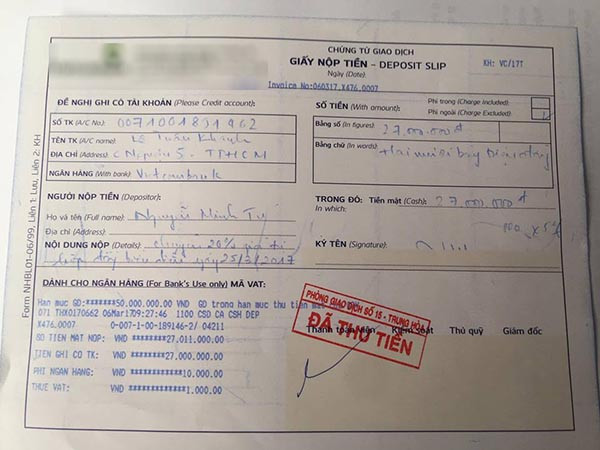 CHỨNG TỪ GIAO DỊCH
GIẤY NỘP TIỀN – DEPOSIT SLIP
KH: VC/17T
Ngày (Date):
Invoice No:060317.X476.0007
ĐỀ NGHỊ GHI CÓ TÀI KHOẢN (Please Credit account):
SỐ TIỀN (With amount):
Phí trong (Charge Included):
Phí ngoài (Charge Excluded):
SỐ TK (A/C No.): 0071001831462
Bằng số (In figures): 27.000.000đ
TÊN TK (A/C name): Lê Tuấn Khanh
Bằng chữ (In words): Hai mươi bảy triệu đồng
ĐỊA CHỈ (Address): TPHCM
NGÂN HÀNG (With bank): Vietcombank
NGƯỜI NỘP TIỀN (Depositor):
TRONG ĐÓ: Tiền mặt (Cash): 27.000.000đ
In which:
Họ và tên (Full name): Nguyễn Minh
Địa chỉ (Address)
NỘI DUNG NỘP (Details): chuyển 20% giá trị
hợp đồng ngày 25/3/2017
KÝ TÊN (Signature):
DÀNH CHO NGÂN HÀNG (For Bank's Use only) MÃ VAT:
Han muc GD:*******50.000.000.00 VND GD trong han muc thu tien mat
071 THX0170662 06Mar1709:27:46 1100 CSD CA CSH DEP
X476.0007 0-007-1-00-189146-2/ 04211
SO TIEN MAT NOP: VND ********27,011,000.00
TIEN GHI CO TK: VND ********27,000,000.00
PHI NGAN HANG: VND ***********10,000.00
THUE VAT: VND ************1,000.00
PHÒNG GIAO DỊCH SỐ 15 - TRUNG HÒA
ĐÃ THU TIỀN
Thanh toán viên Kiểm soát Thủ quỹ Giám đốc
Form NHBL01-06/99, Liên 1: Lưu, Liên 2: KH